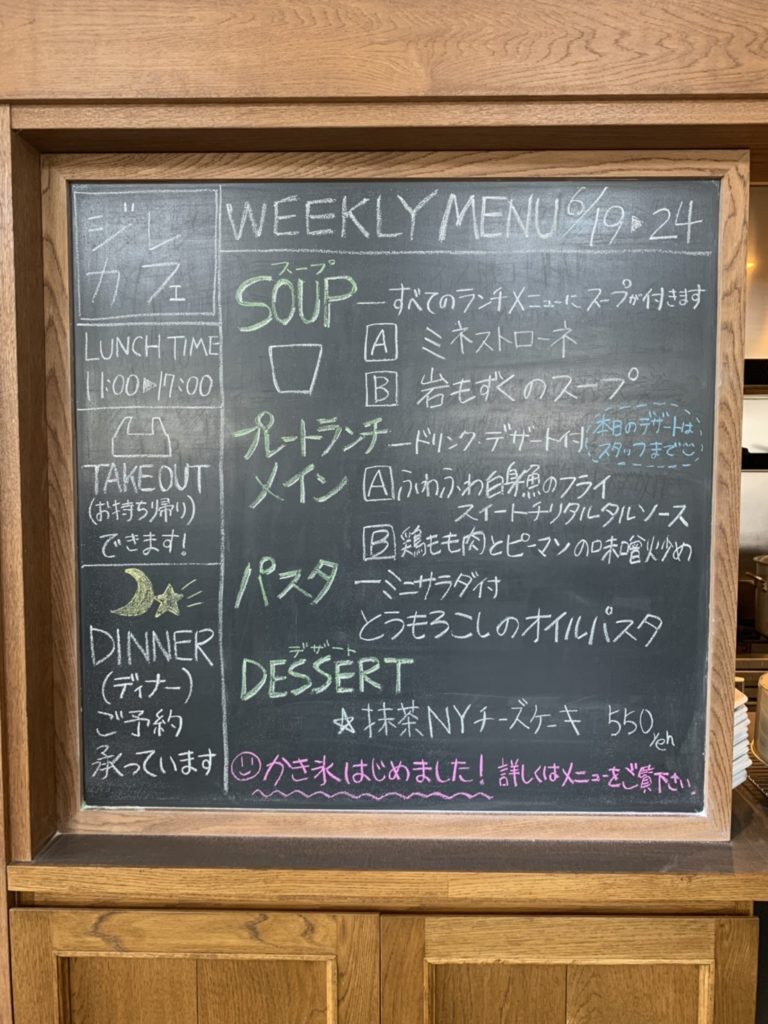 ジレ
カフェ
LUNCH TIME
11:00▶17:00
TAKEOUT
(お持ち帰り)
できます!
DINNER
(ディナー)
ご予約
承っています
WEEKLY MENU 6/19▶24
スープ
SOUP ―すべてのランチメニューにスープが付きます
A ミネストローネ
B 岩もずくのスープ
プレートランチ ―ドリンク・デザート付
本日のデザートは
スタッフまで
メイン A ふわふわ白身魚のフライ
スイートチリタルタルソース
B 鶏もも肉とピーマンの味噌炒め
パスタ ―ミニサラダ付
とうもろこしのオイルパスタ
デザート
DESSERT
☆抹茶NYチーズケーキ 550yen
かき氷はじめました! 詳しくはメニューをご覧下さい